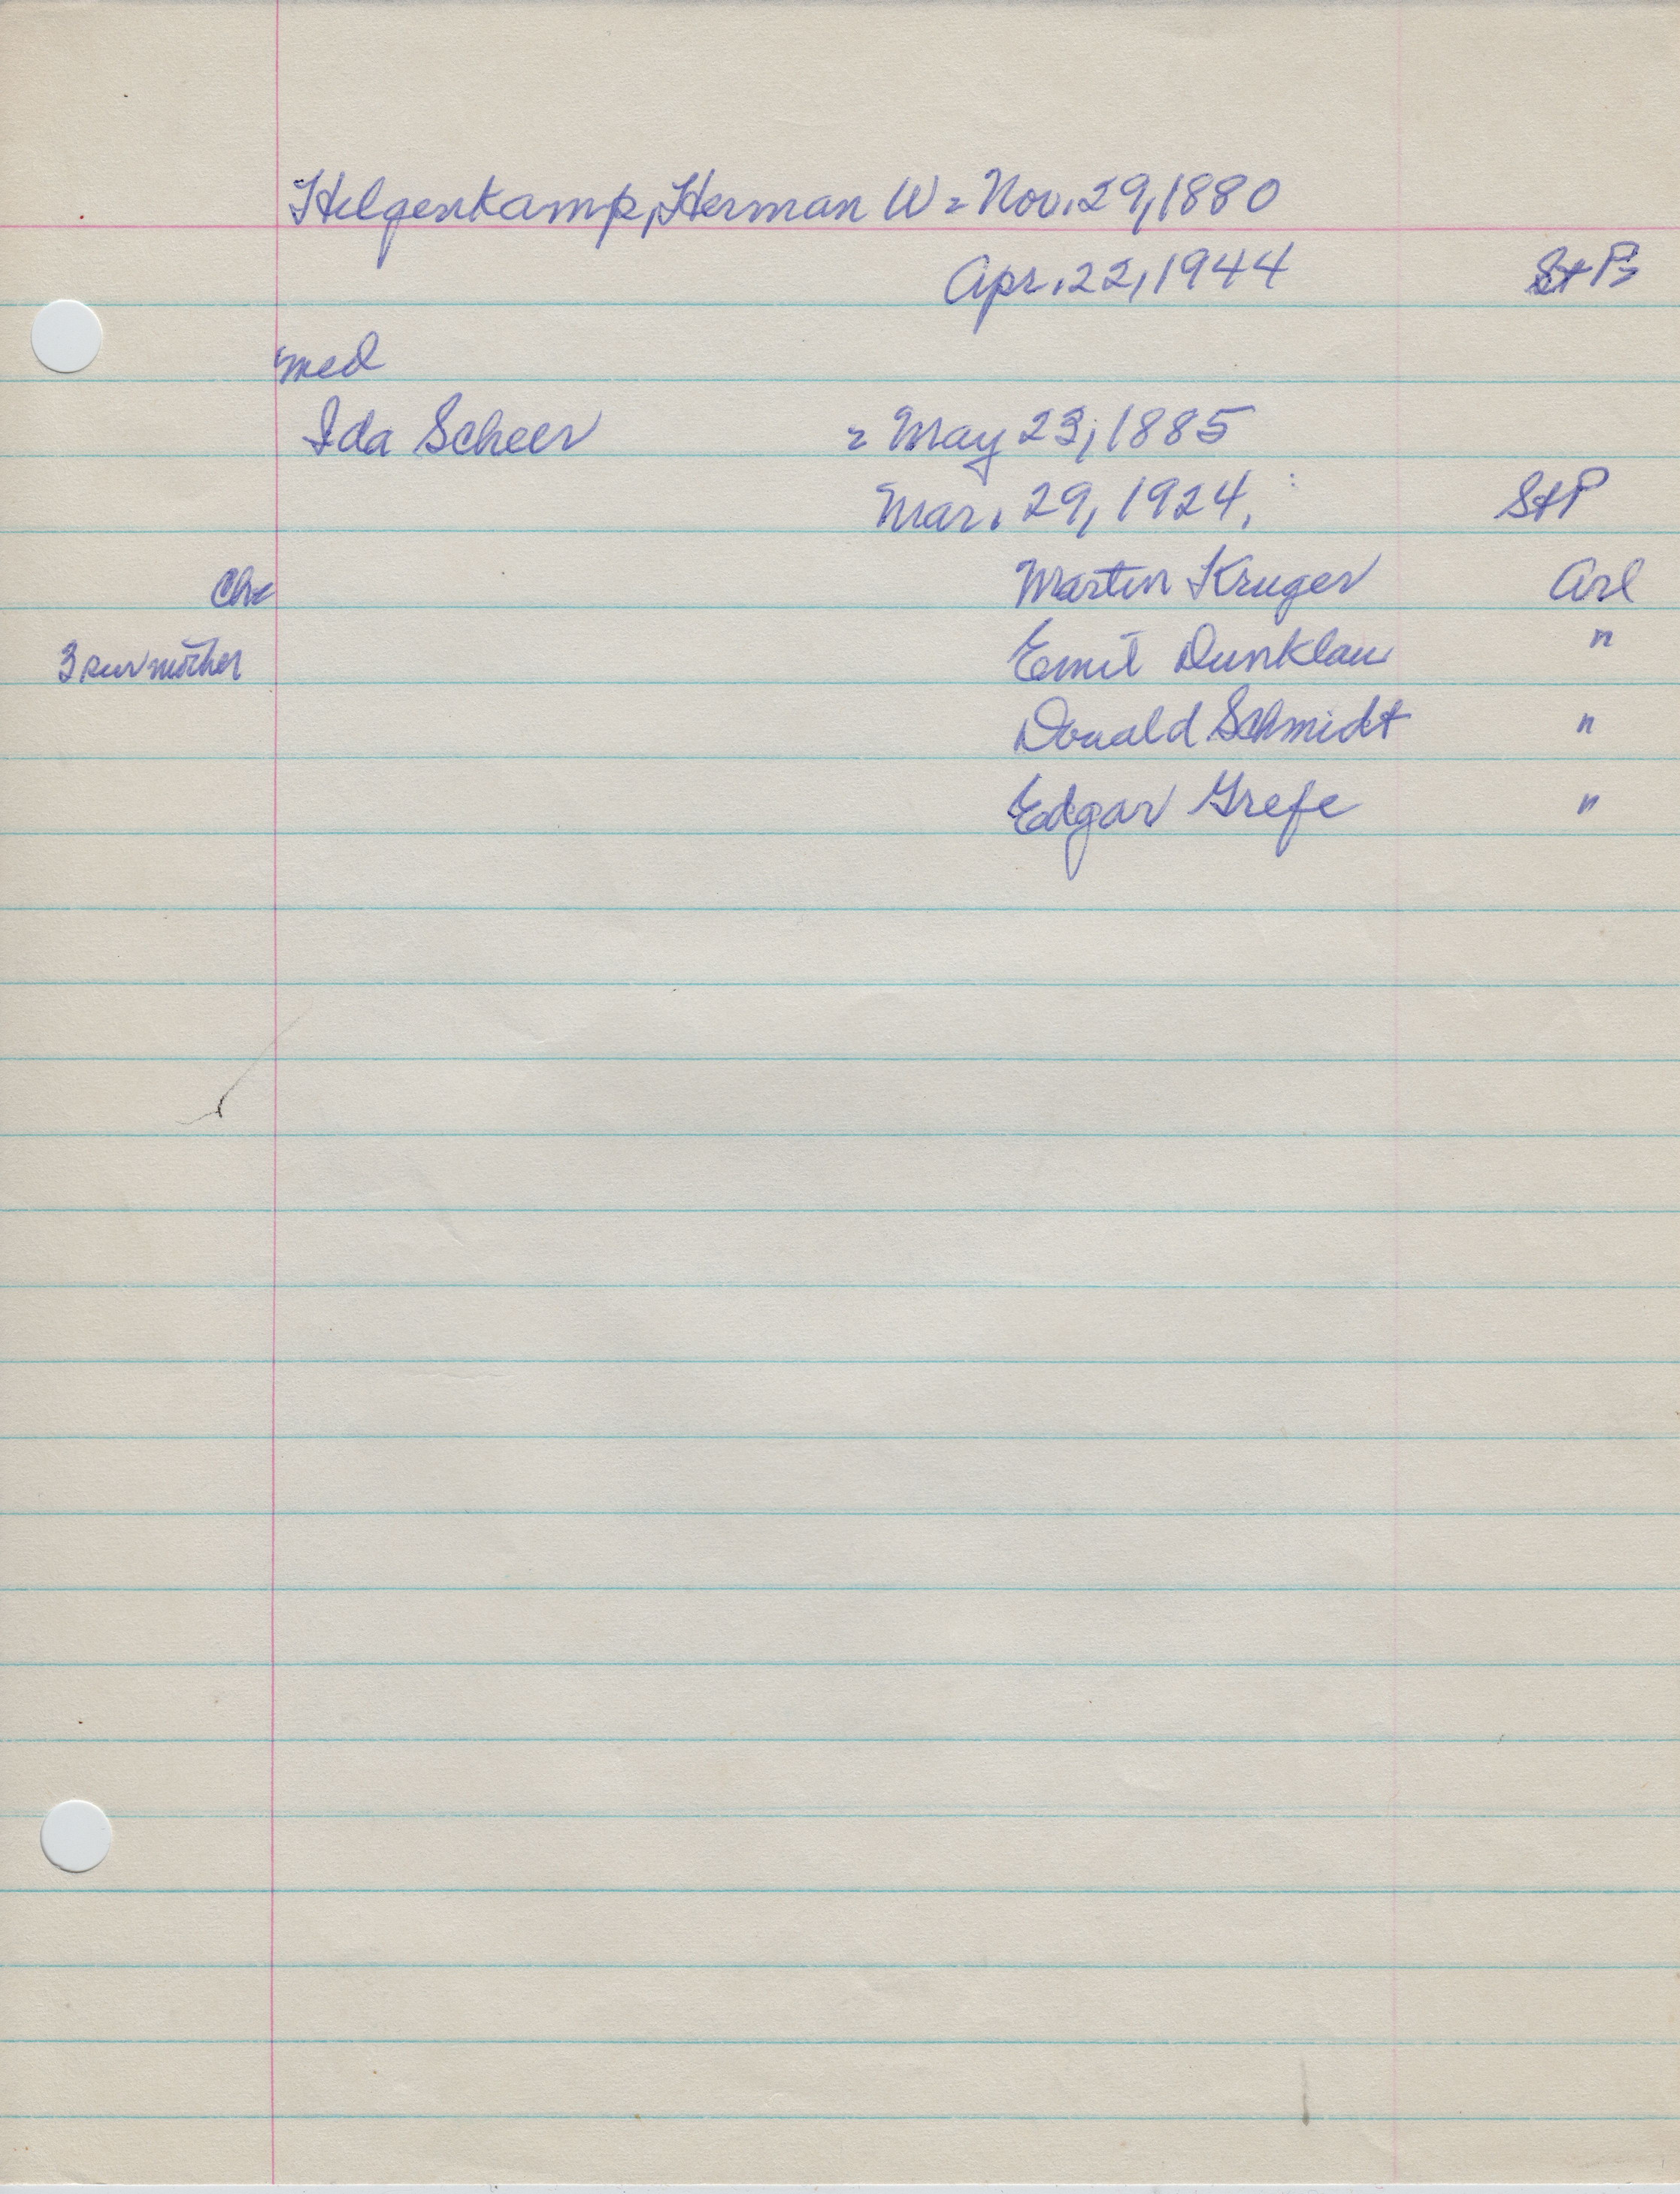 Helgenkamp, Herman W = Nov. 29, 1880
Apr. 22, 1944 St P
med
Ida Scheer = May 23, 1885
Mar. 29, 1924. St P
Martin Kruger Arl
Emil Dunklau "
3 sur mother
Donald Schmidt "
Edgar Grefe "